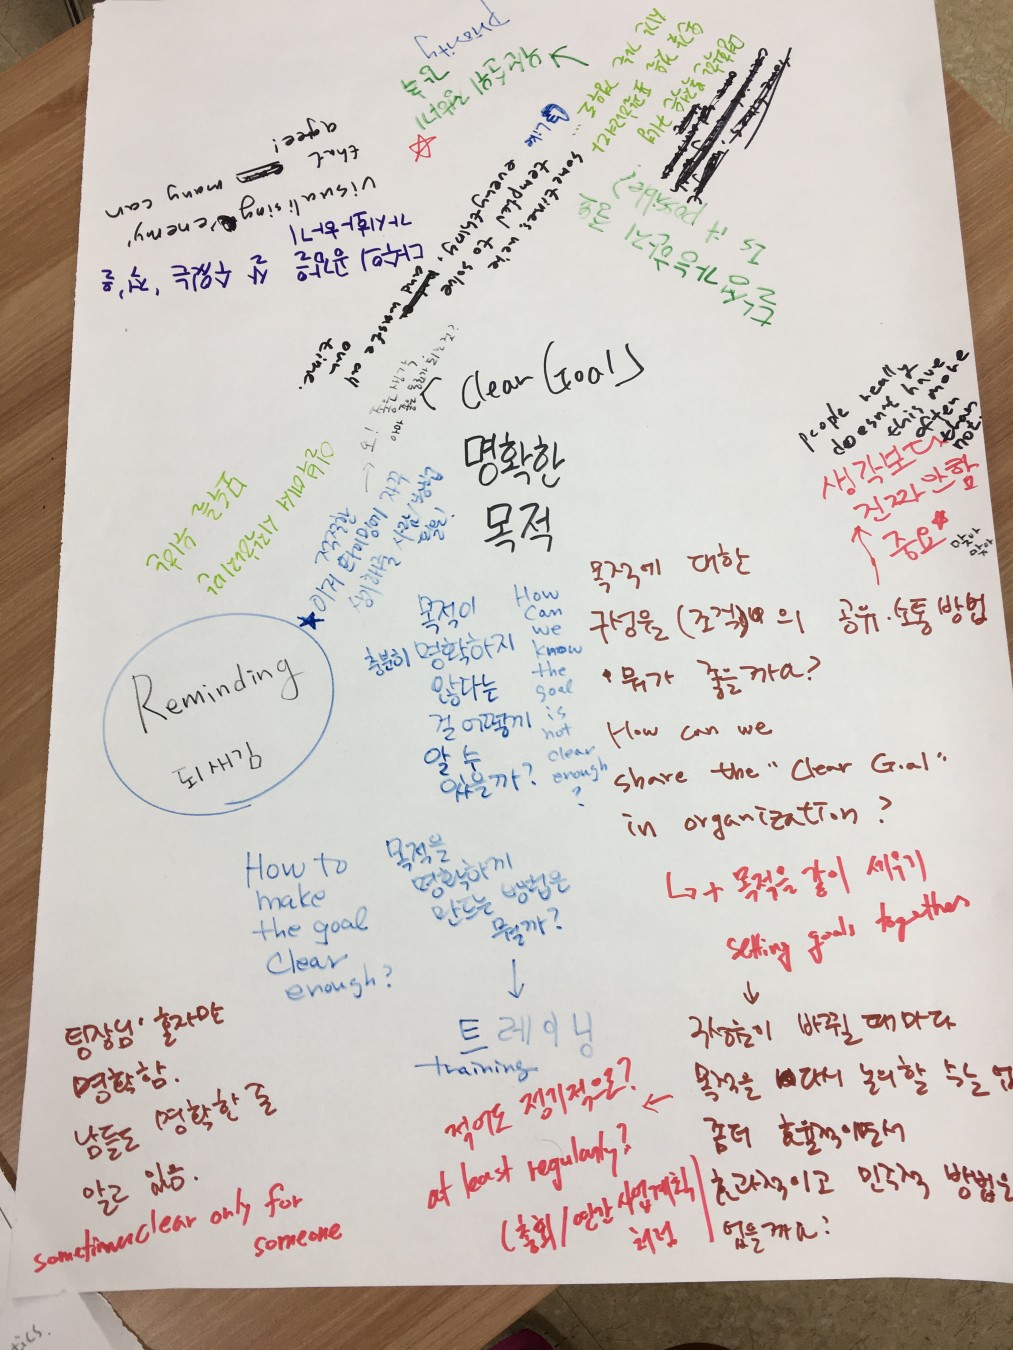 priority
우선순위 정하기
visualising 'enemy'
that many can
agee!
다수의 공감을 살 수 있는 '적'을
가시화하기
Like
sometimes we're
tempted to solve
everything,
and waste
our
time.
Is it possible?
달성 가능
< Clear Goal >
명확한
목적
people really
doesn't have
this more
often
than
not.
생각보다
진짜 안함
중요
목적에 대한
구성원 (조직) 의 공유·소통 방법
뭐가 좋을까요?
How can we
share the "Clear Goal"
in organization?
↳ + 목적을 같이 세우기
setting goals together
구성원이 바뀔 때마다
목적을 다시 논의할 수는 없
좀 더 효율적이면서
효과적이고 민주적 방법은
없을까요?
적어도 정기적으로?
at least regularly?
(총회/연간 사업계획
처럼
목적이
충분히 명확하지
않다는
걸 어떻게
알 수
있을까?
How
can
we
know
the
goal
is
not
clear
enough
?
Reminding
되새김
How to
make
the goal
clear
enough?
목적을
명확하게
만드는 방법은
뭘까?
트레이닝
training
팀장님 혼자만
명확함.
남들도 명확한 줄
알고 있음.
clear only for
someone